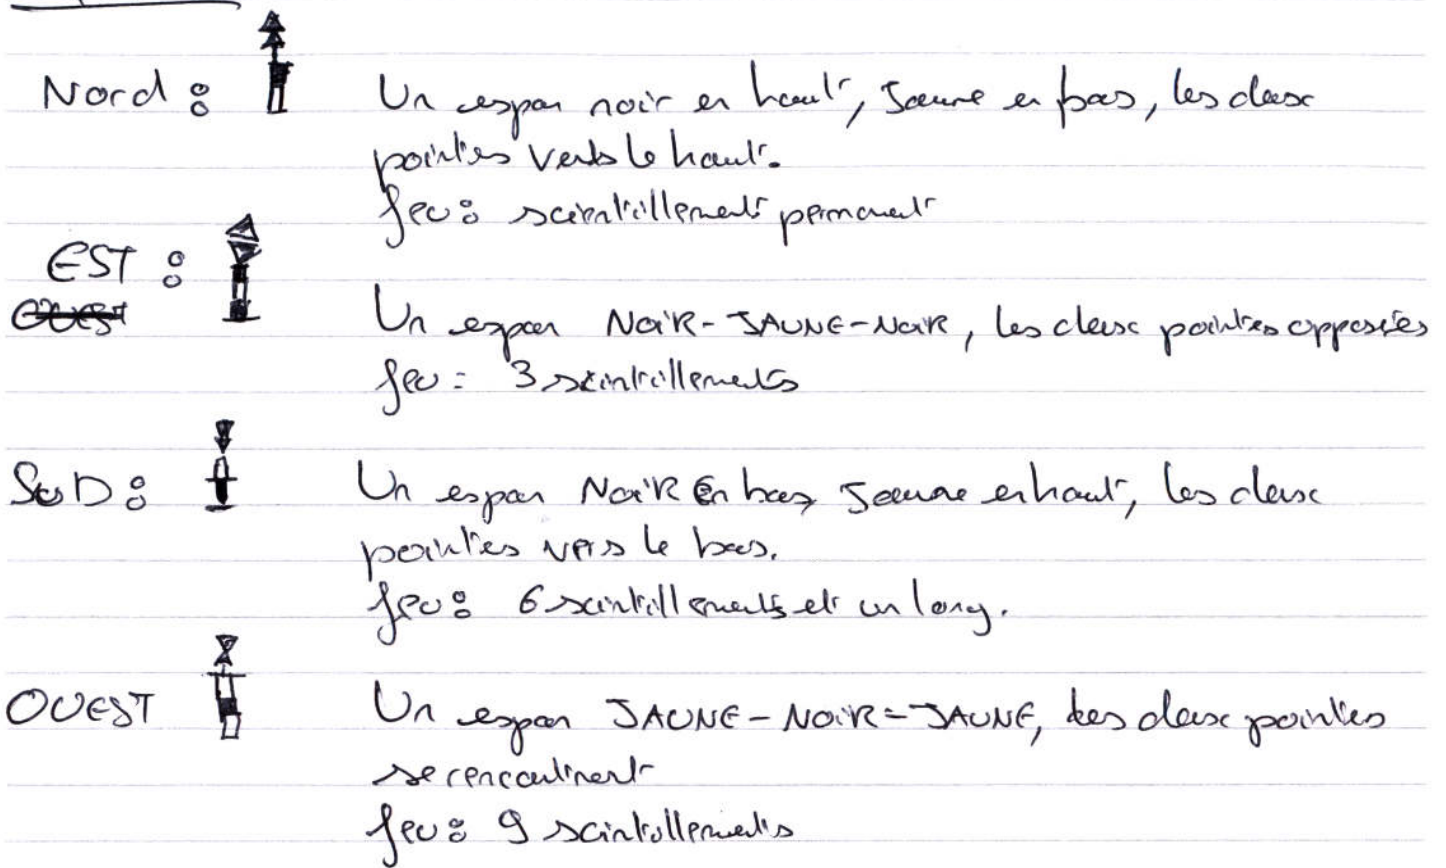 Nord :
Un espar noir en haut, Jaune en bas, les deux
pointes vers le haut.
feu : scientillement permanent
EST :
OUEST
Un espar NOIR-JAUNE-NOIR, les deux pointes opposées
feu : 3 scintillements
SUD :
Un espar NOIR En bas, Jaune en haut, les deux
pointes vers le bas.
feu : 6 scintillements et un long.
OUEST
Un espar JAUNE-NOIR-JAUNE, les deux pointes
se rencontrent
feu : 9 scintillements